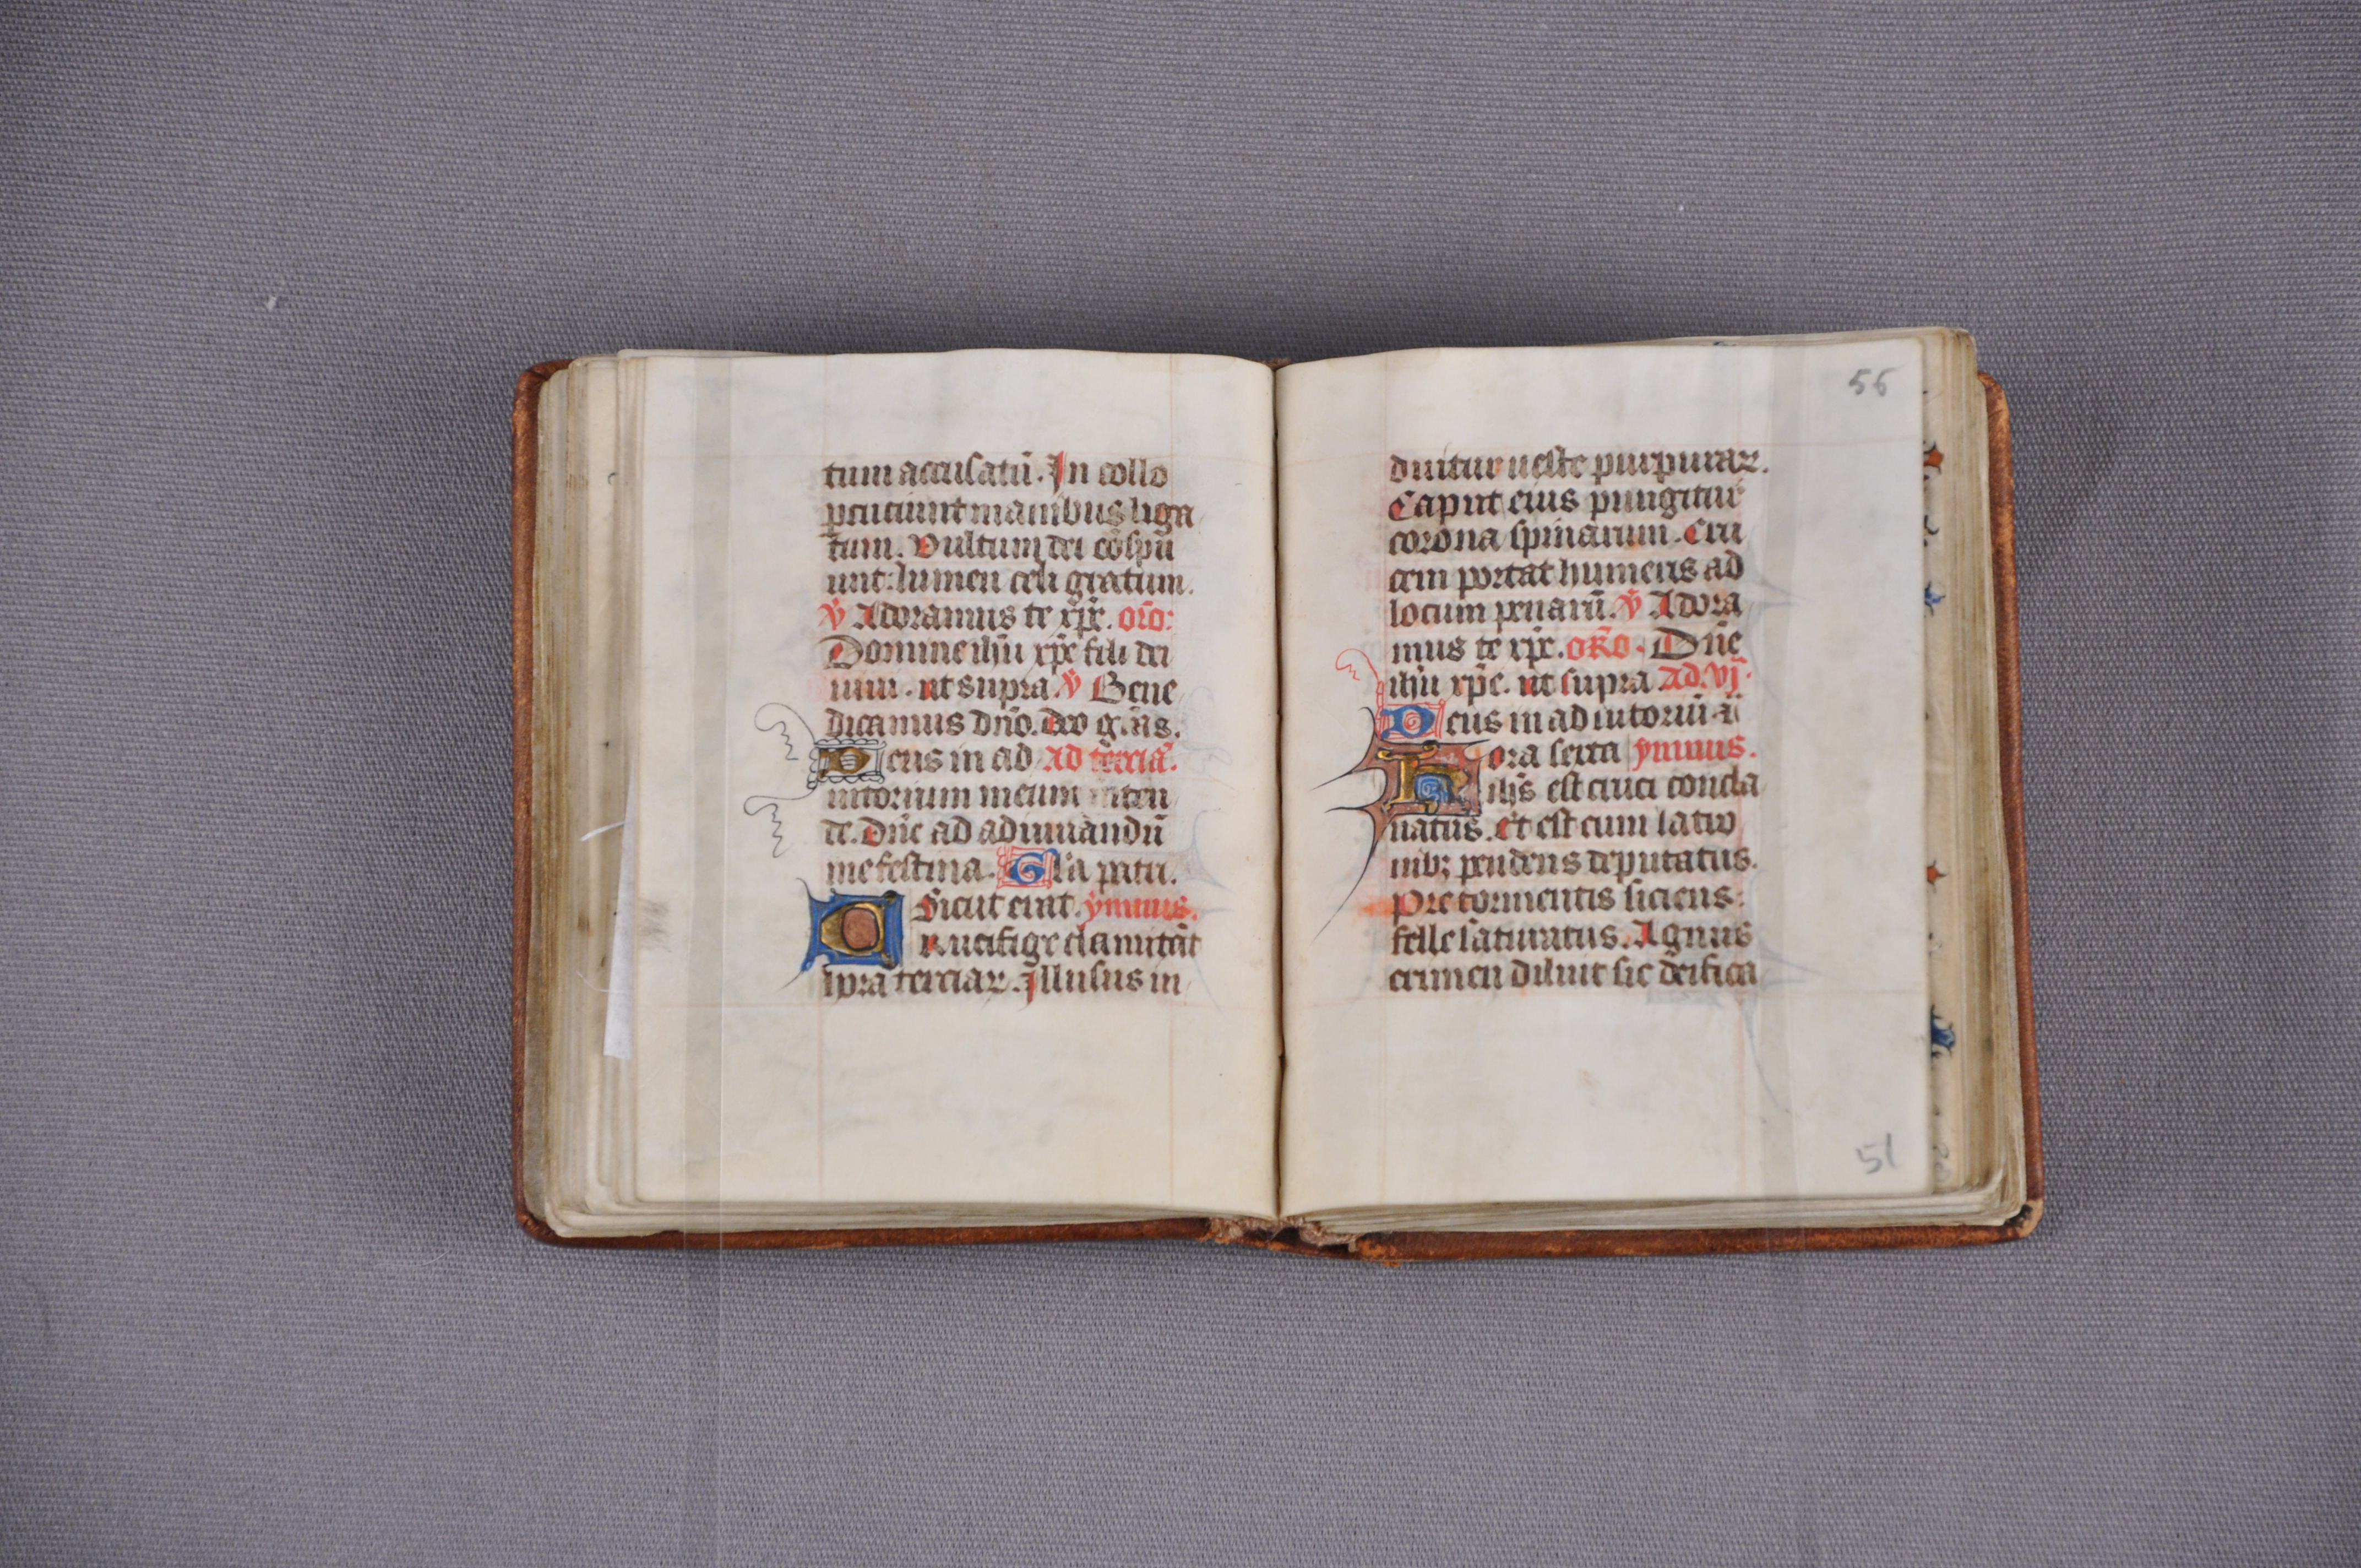 tum accusatū. In collo
pcuciunt manibus liga
tum. Vultum dei cōspu
unt: lumen celi gratum.
v̄ Adoramus te xp̄e. or̄o:
Domine ihū xp̄e fili dei
uiui. ut supra v̄ Bene
dicamus dn̄o. deo gr̄as.
Deus in ad ad terciā.
iutorium meum inten
de. Dn̄e ad adiuuandū
me festina. Gl̄a patri.
Sicut erat. ymnus.
Crucifige clamitāt
hora terciar. Illusus in
56
duitur ueste purpurar.
Caput eius pungitur
corona spinarum. Cru
cem portat humeris ad
locum penarū. v̄ Adora
mus te xp̄e. oro. Dn̄e
ihū xp̄e. ut supra Ad. vj.
Deus in ad iutoriū ī
Hora sexta ymnus.
ihs̄ est cruci concla
uatus. et est cum latro
nibꝫ pendens deputatus.
Pre tormentis siciens
felle saturatus. Agnus
crimen diluit sic deifica
51